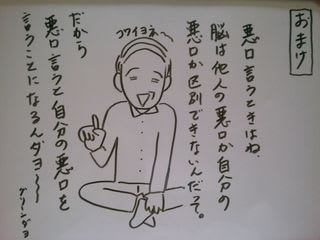 おまけ
悪口言うときはね、
脳は他人の悪口か自分の
悪口か区別できないんだそ。
コワイヨネ〜
だから
悪口言うと自分の悪口を
言うことになるんダヨ〜〜